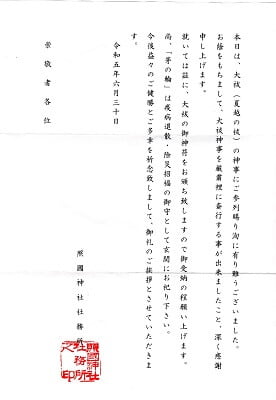 本日は、大祓（夏越の祓）の神事にご参列賜り洵に有り難うございました。
お陰をもちまして、大祓神事を厳粛裡に斎行する事が出来ましたこと、深く感謝
申し上げます。
就いては茲に、大祓の御神符をお頒ち致しますので御受納の程願い上げます。
尚、「茅の輪」は疫病退散・除災招福の御守として玄関にお祀り下さい。
今後益々のご健勝とご多幸を祈念致しまして、御礼のご挨拶とさせていただきま
す。
令和五年六月三十日
照國神社社務所
照國神社
社務所
之印
崇敬者各位